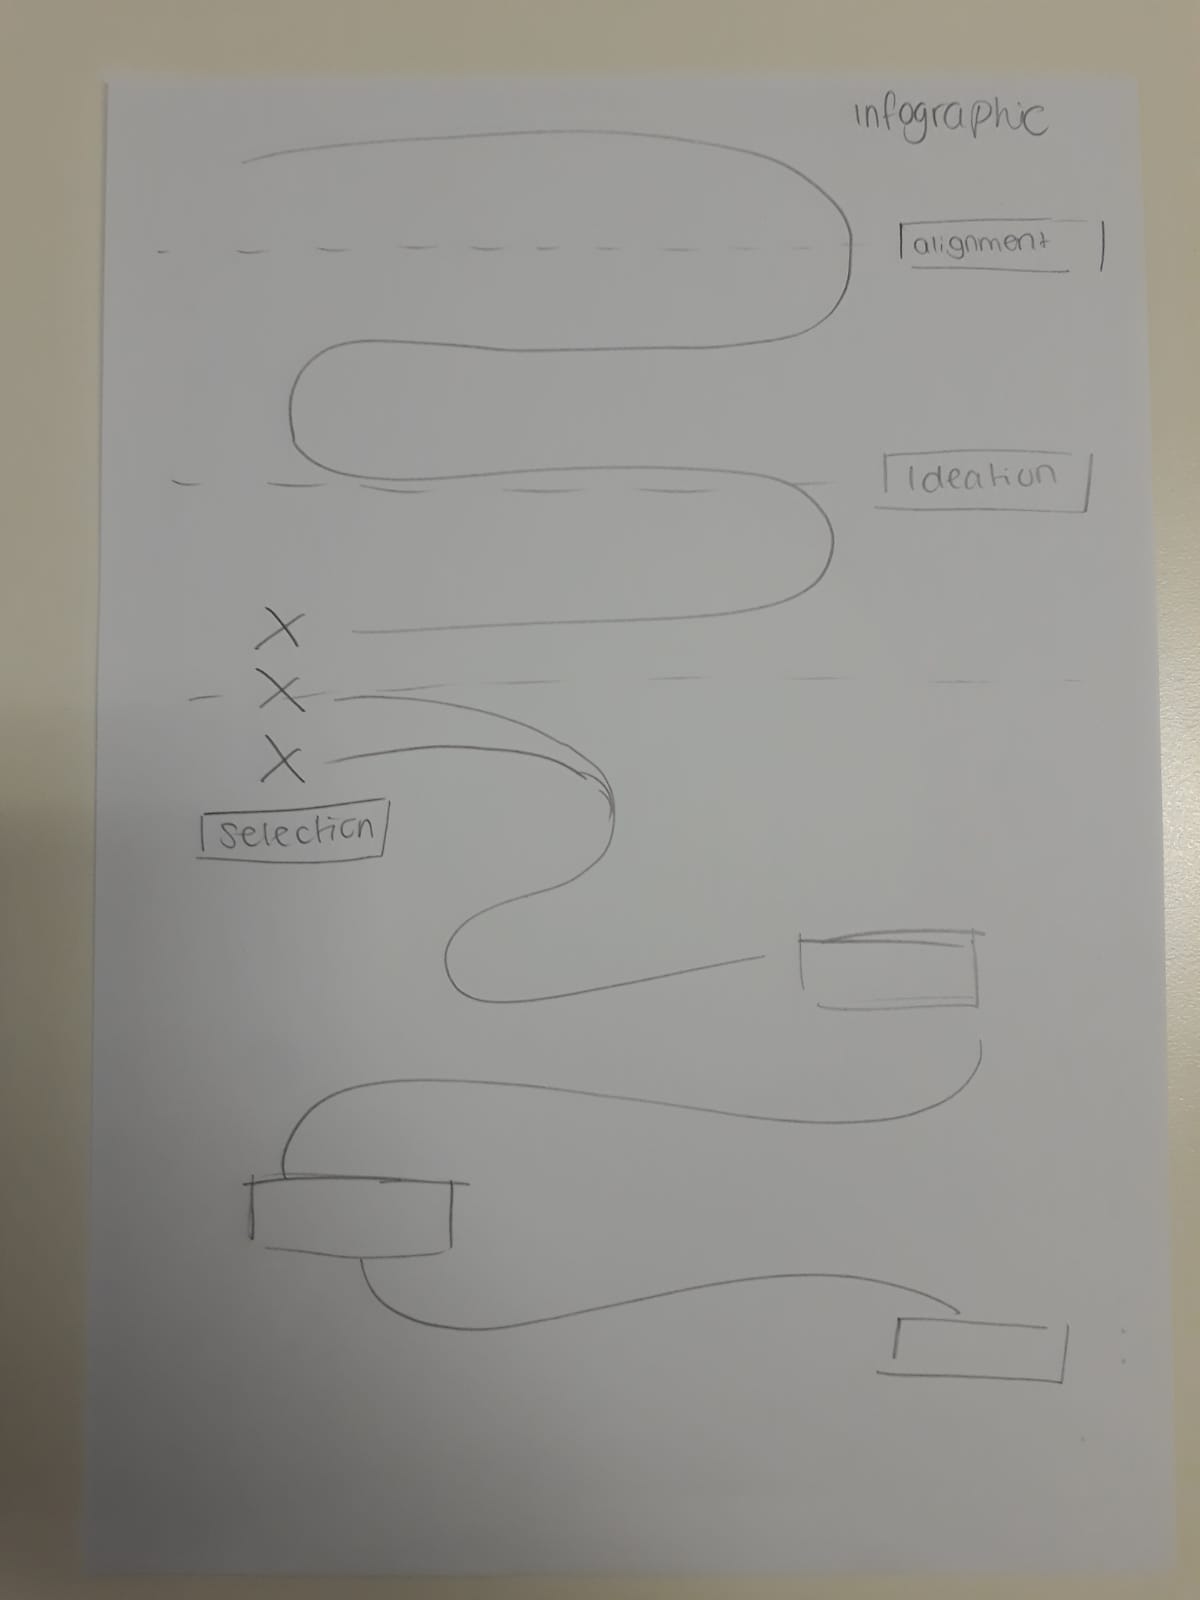 infographic
alignment
Ideation
X
X
X
Selection